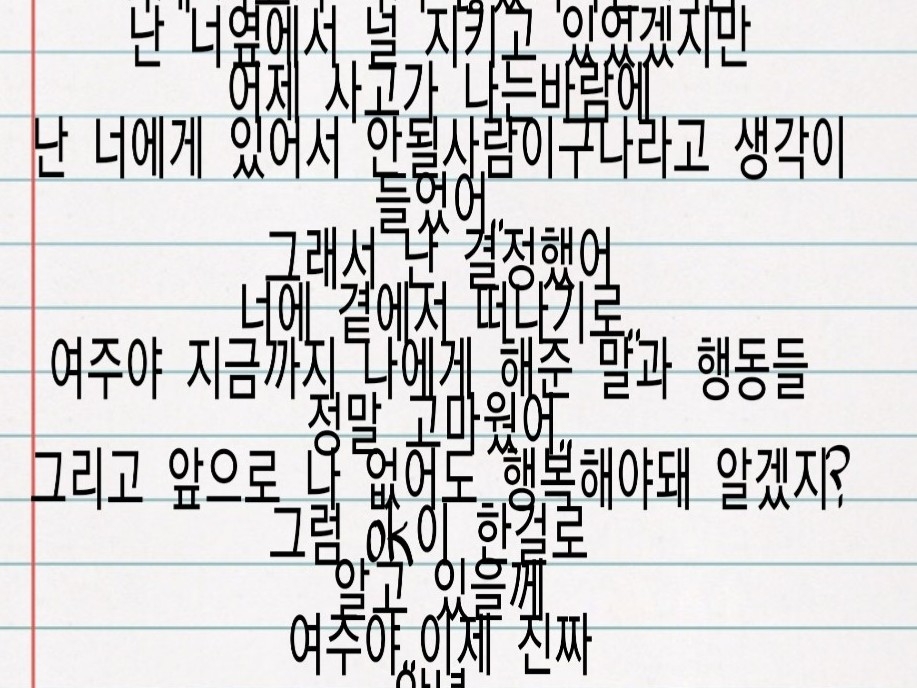 난 너옆에서 널 지키고 있었겠지만
어제 사고가 나는바람에
난 너에게 있어서 안될사람이구나라고 생각이
들었어..
그래서 난 결정했어
너에 곁에서 떠나기로..
여주야 지금까지 나에게 해준 말과 행동들
정말 고마웠어..
그리고 앞으로 나 없어도 행복해야돼 알겠지?
그럼 ok이 한걸로
알고 있을께
여주야..이제 진짜